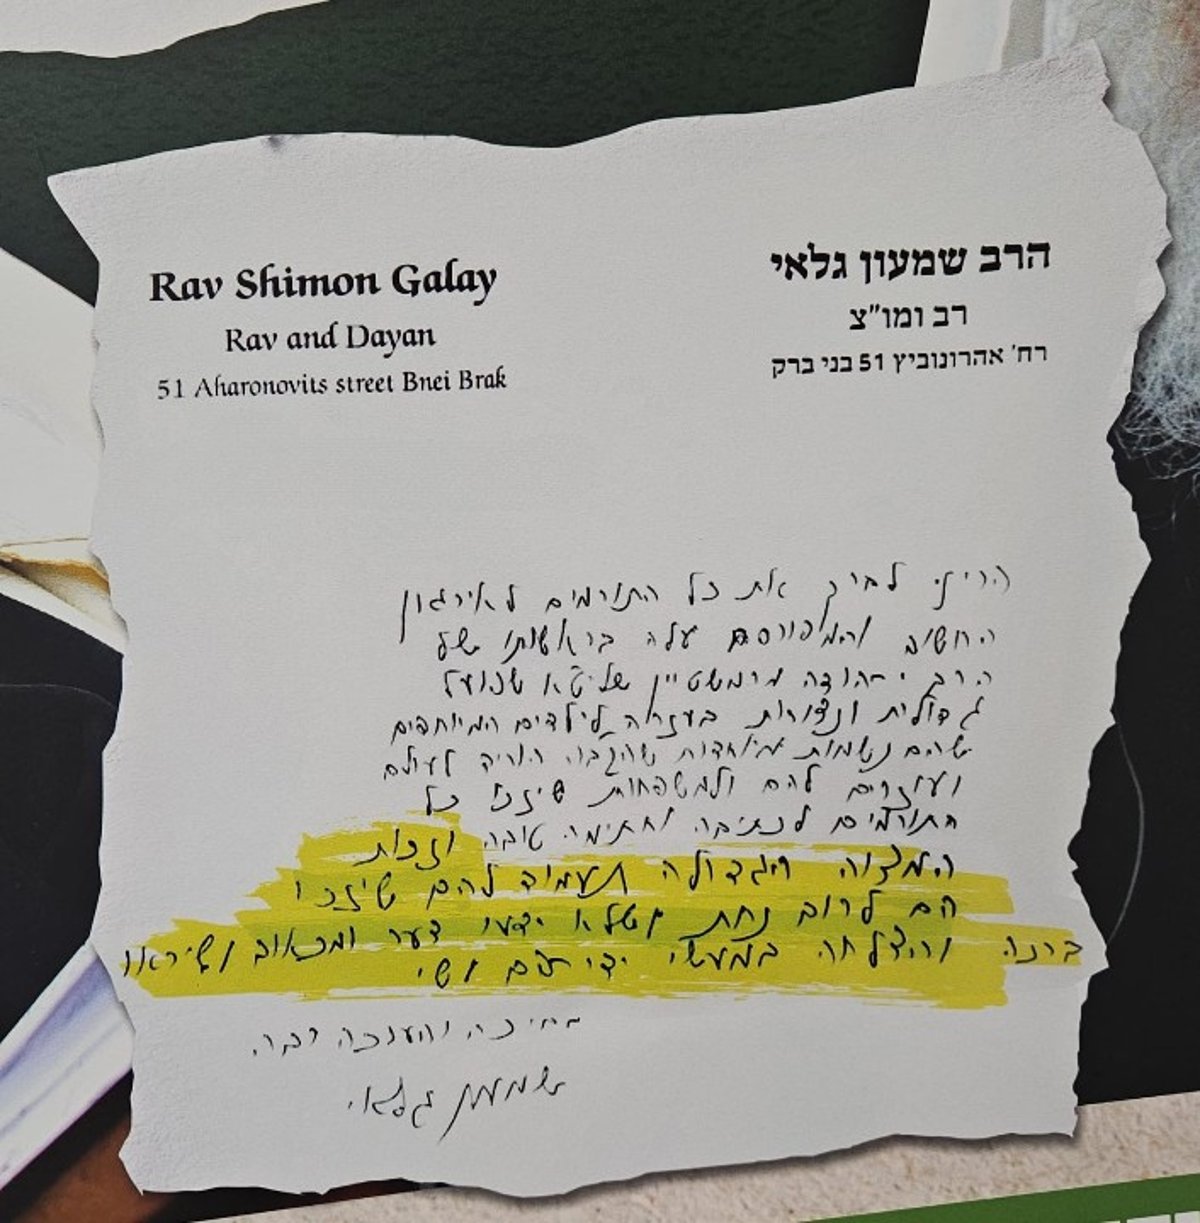 Rav Shimon Galay
Rav and Dayan
51 Aharonovits street Bnei Brak
הרב שמעון גלאי
רב ומו"צ
רח' אהרונוביץ 51 בני ברק
הריני לברך את כל התורמים לאירגון
החשוב והמפורסם עלה בראשותו של
הרב יהודה מרמשטיין שליט"א שפועל
גדולות ונצורות בעזרה לילדים המיוחדים
שהם נשמות מיוחדות שהקב"ה הוריד לעולם
ועוזרים להם ולמשפחות שיזכו כל
התורמים לכתיבה וחתימה טובה וזכות
המצוה הגדולה תעמוד להם שיזכו
הם לרוב נחת ושלא ידעו צער ומכאוב ושיראו
ברכה והצלחה במעשי ידיהם
בברכה והערכה רבה
שמעון גלאי